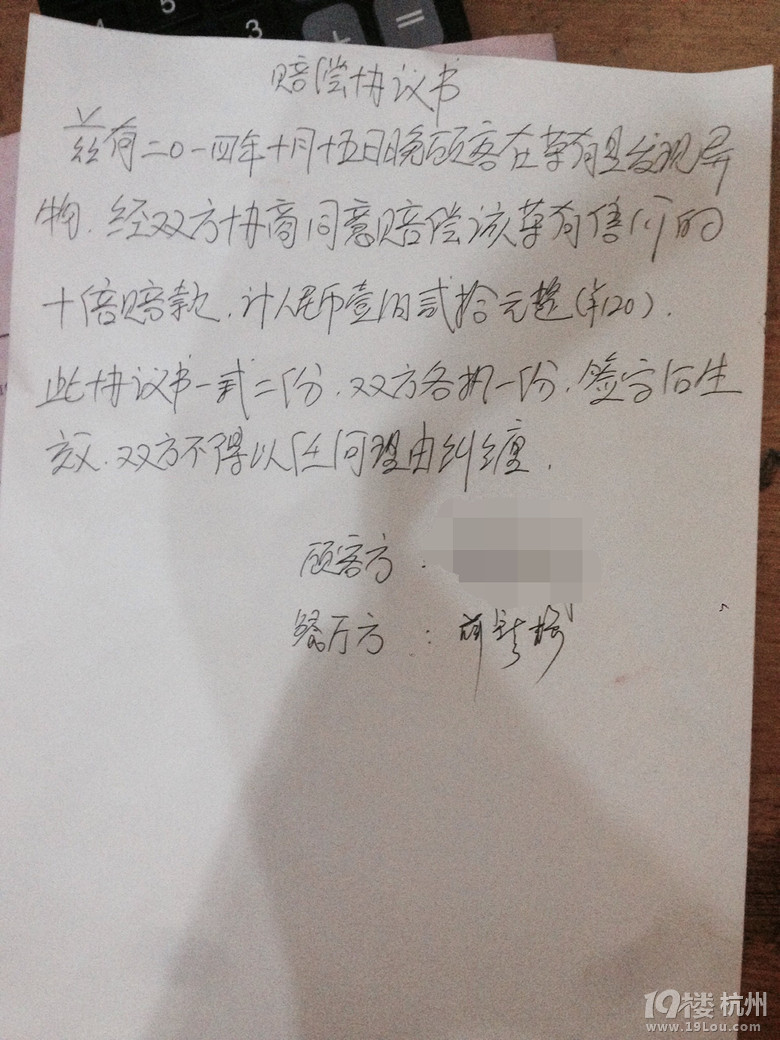 5
3
=
赔偿协议书
兹有二0一四年十月十五日晚顾客在草有里发现异
物.经双方协商同意赔偿该草有售价的
十倍赔款.计人民币壹佰贰拾元整(¥120).
此协议书一式二份.双方各执一份.签字后生
效.双方不得以任何理由纠缠.
顾客方:
餐厅方:
19楼杭州
www.19Lou.com